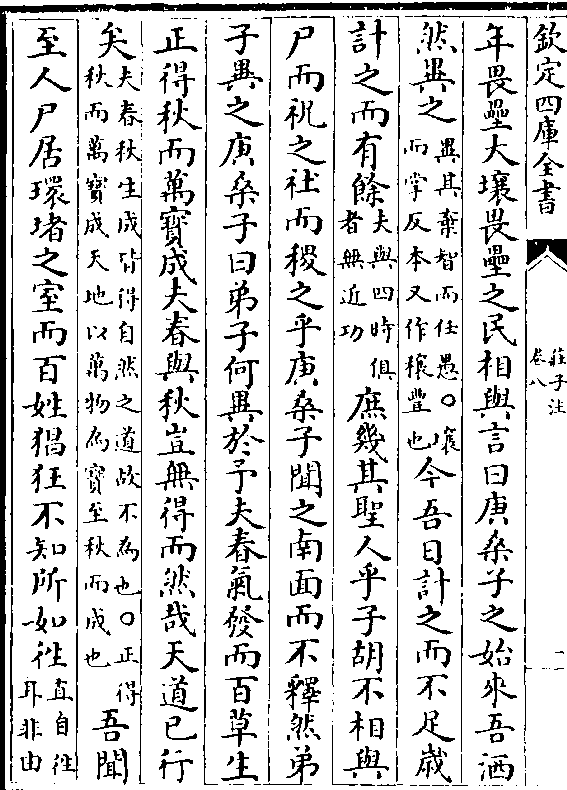 欽定四庫全書
莊子注
卷八
二
年畏壘大壤畏壘之民相與言曰庚桑子之始來吾洒
然異之異其棄智而任愚○壤而掌反本又作穰豐也今吾日計之而不足歲
計之而有餘夫與四時俱者無近功庶幾其聖人乎子胡不相與
尸而祝之社而稷之乎庚桑子聞之南面而不釋然弟
子異之庚桑子曰弟子何異於予夫春氣發而百草生
正得秋而萬寶成夫春與秋豈無得而然哉天道已行
矣夫春秋生成皆得自然之道故不為也○正得秋而萬寶成天地以萬物為寶至秋而成也吾聞
至人尸居環堵之室而百姓猖狂不知所如往直自往耳非由